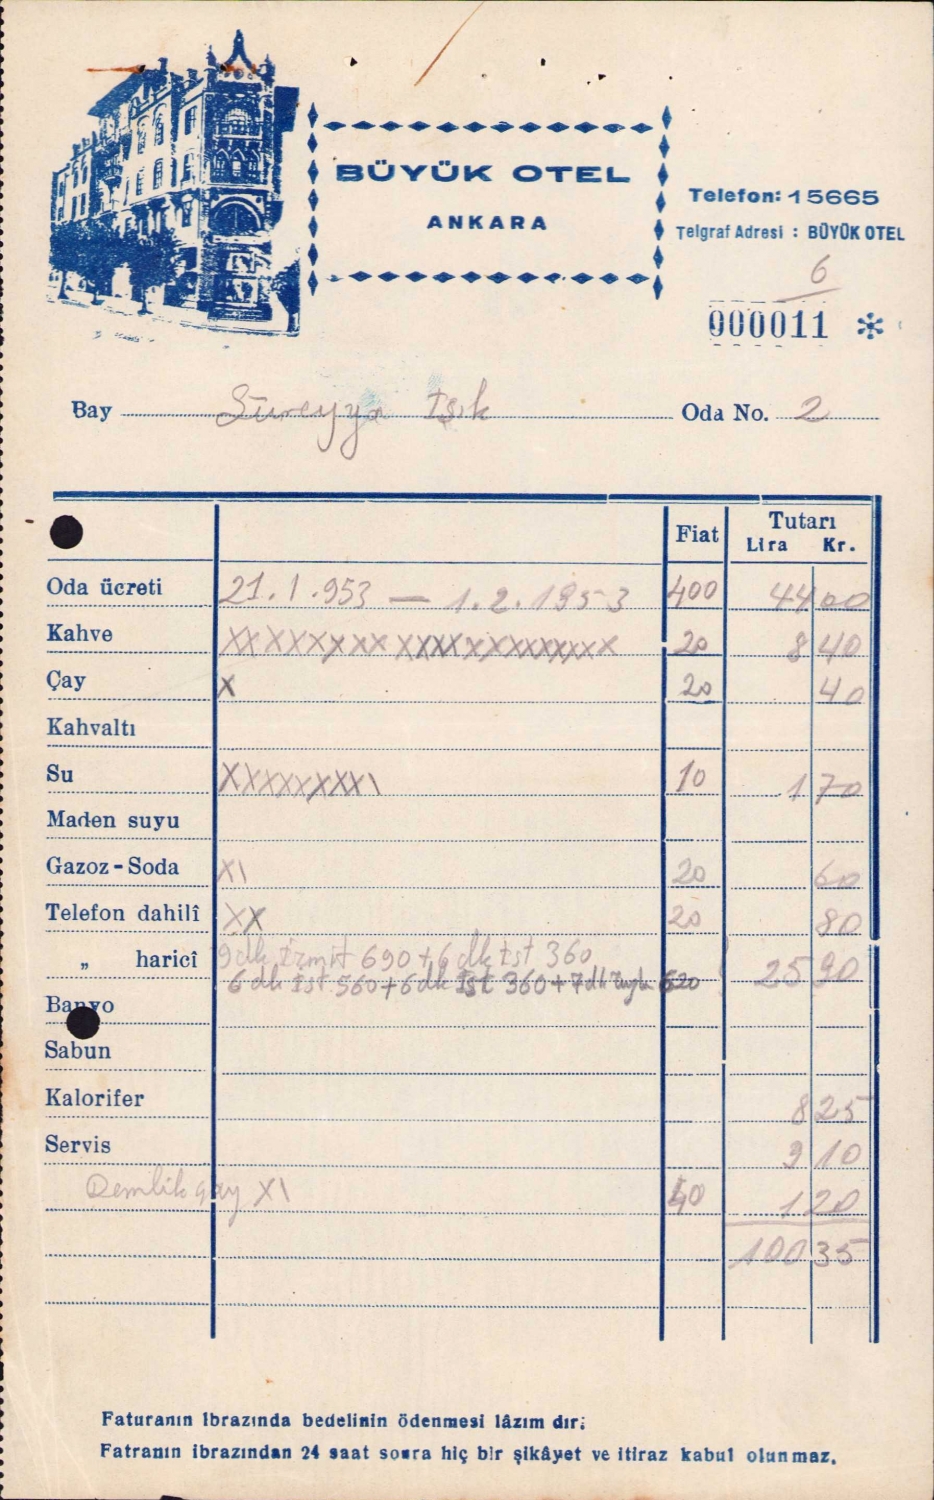 BÜYÜK OTEL
ANKARA
Telefon: 15665
Telgraf Adresi : BÜYÜK OTEL
6
000011 *
Bay Süreyya Işık Oda No. 2
Fiat Tutarı
Lira Kr.
Oda ücreti 21.1.953 — 1.2.1953 400 44 00
Kahve XXXXXXXX XXXXXXXXXXXXX 20 8 40
Çay X 20 40
Kahvaltı
Su XXXXXXXX\ 10 1 70
Maden suyu
Gazoz-Soda X\ 20 60
Telefon dahilî XX 20 80
„ haricî 9 dk İzmit 690+6 dk İst 360 25 90
6 dk İst 560+6 dk İst 360+7 dk 620
Banyo
Sabun
Kalorifer 8 25
Servis 9 10
Demlik çay X\ 40 1 20
100 35
Faturanın ibrazında bedelinin ödenmesi lâzım dır;
Fatranın ibrazından 24 saat sonra hiç bir şikâyet ve itiraz kabul olunmaz.